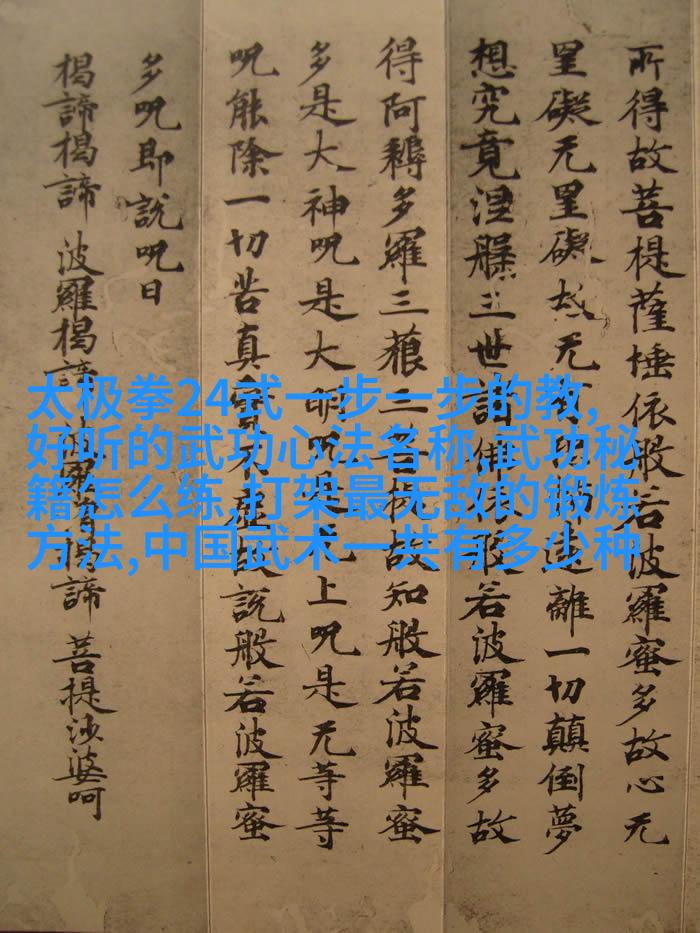 所得故菩提薩埵依般若波羅蜜多故心无
罣礙无罣礙故无遠離一切顛倒夢
想究竟涅槃三世諸佛依般若波羅蜜多故
得阿耨多羅三藐三菩提故知般若波羅蜜
多是大神呪是大明呪是无上呪是无等等
呪能除一切苦真實不虛故說般若波羅蜜
多呪即說呪曰
揭諦揭諦 波羅揭諦 波羅僧揭諦 菩提沙婆呵
太极拳24式一步一步的教,
好听的武功心法名称,武功秘
籍怎么练,打架最无敌的锻炼
方法,中国武术一共有多少种